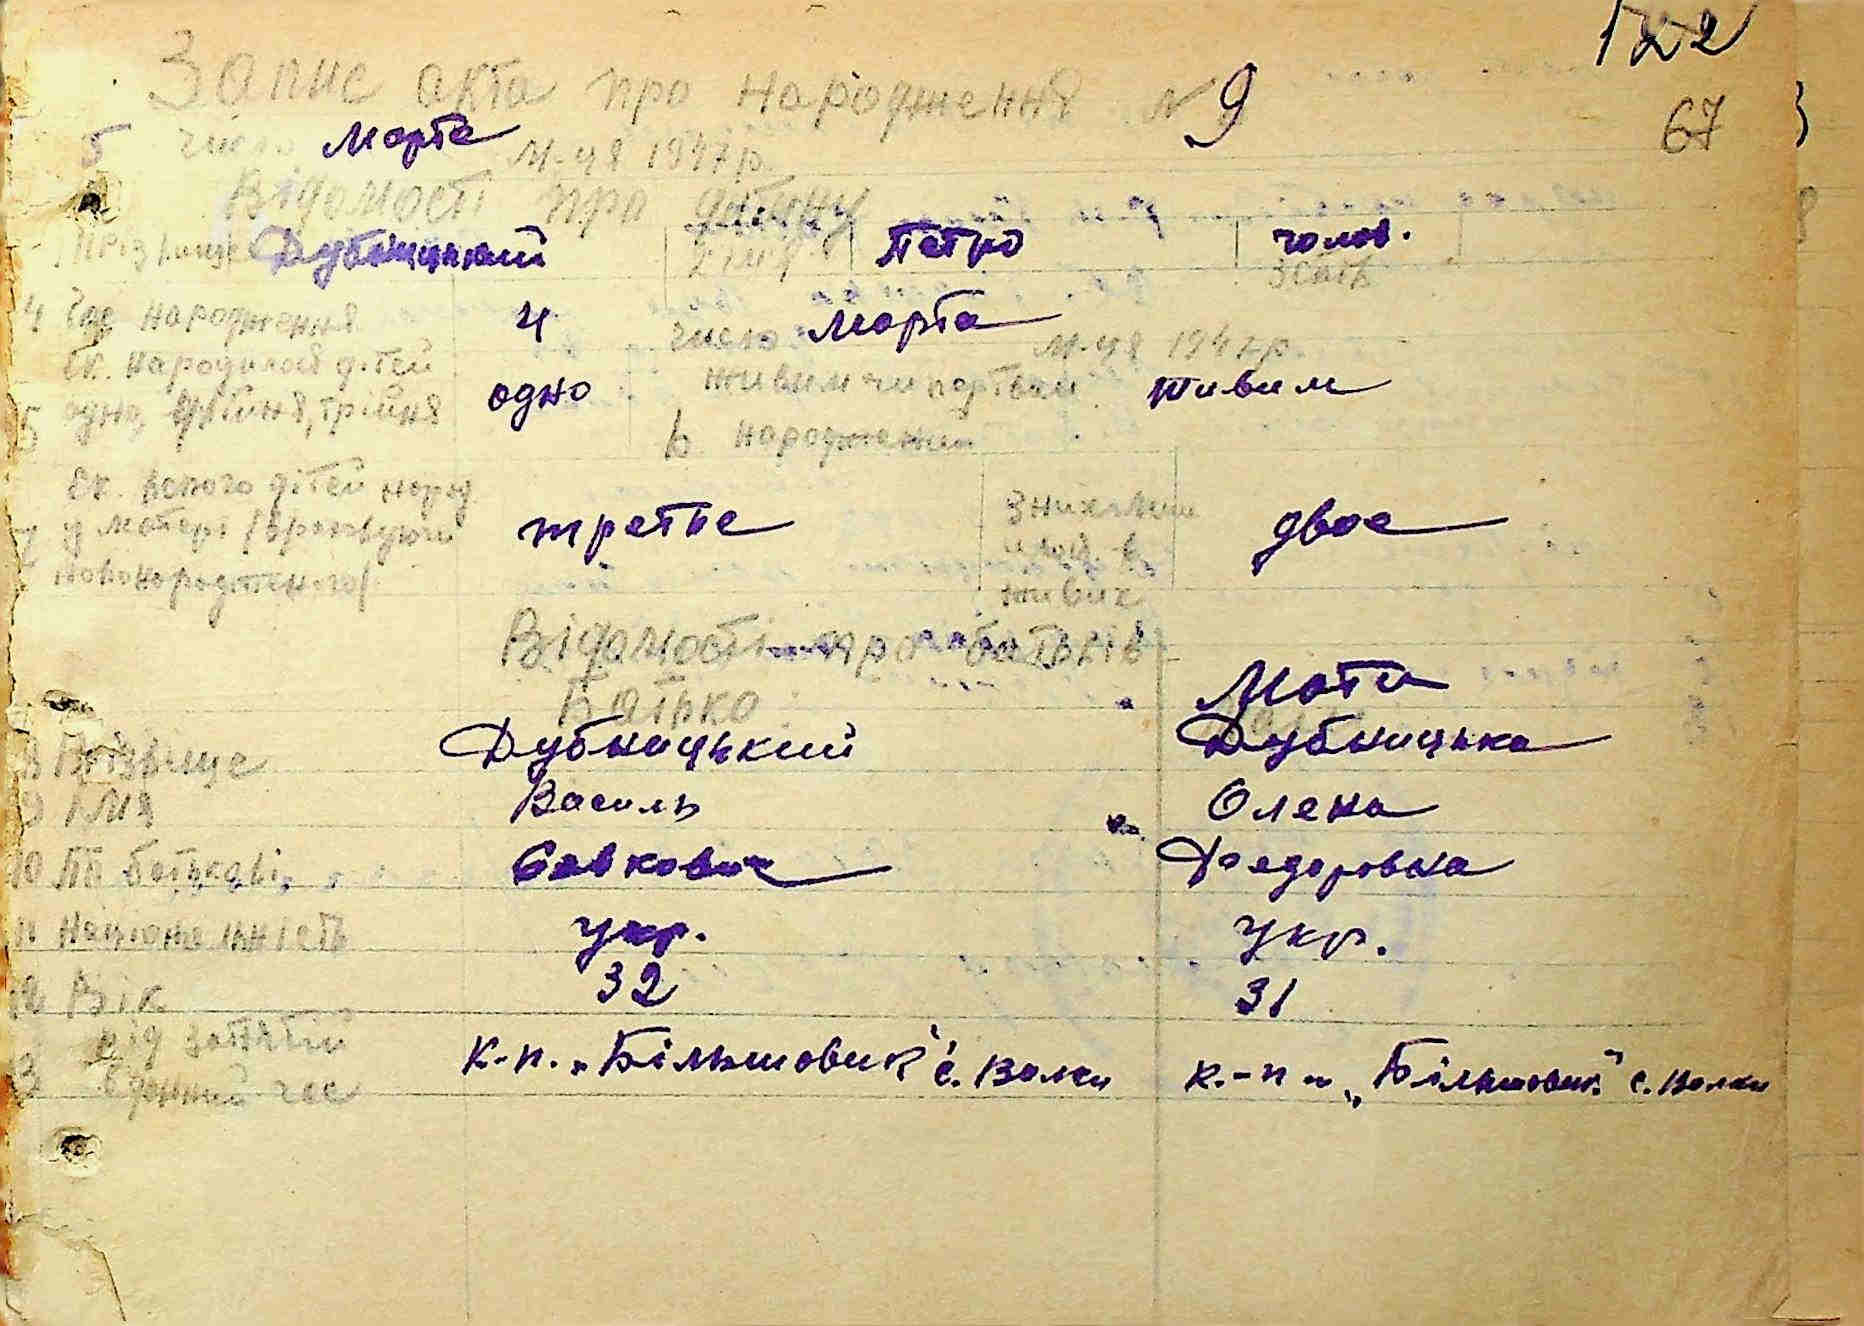 122
Запис акта про народження № 9
67
5 число Марта м-ця 1947 р.
Відомості про дитину
Прізвище Дубницький 2 ім'я Петро чолов.
3 стать
4 Час народження 4 число Марта м-ця 1947 р.
Ск. народилося дітей
5 одно, двійня, трійня одно живим чи мертвим живим
6 народжений
Ск. всього дітей народ.
7 у матері /враховуючи третє з них лиш. двое
новонародженого/ живих
Відомості про батьків
Батько: Мати
8 Прізвище Дубницький Дубницька
9 Ім'я Василь Олена
10 По батькові Савкович Федоровна
11 Національність укр. укр.
12 Вік 32 31
рід занятій
13 в данний час к-п. „Більшовик" с. Волки к.-п „Більшовик" с. Волки